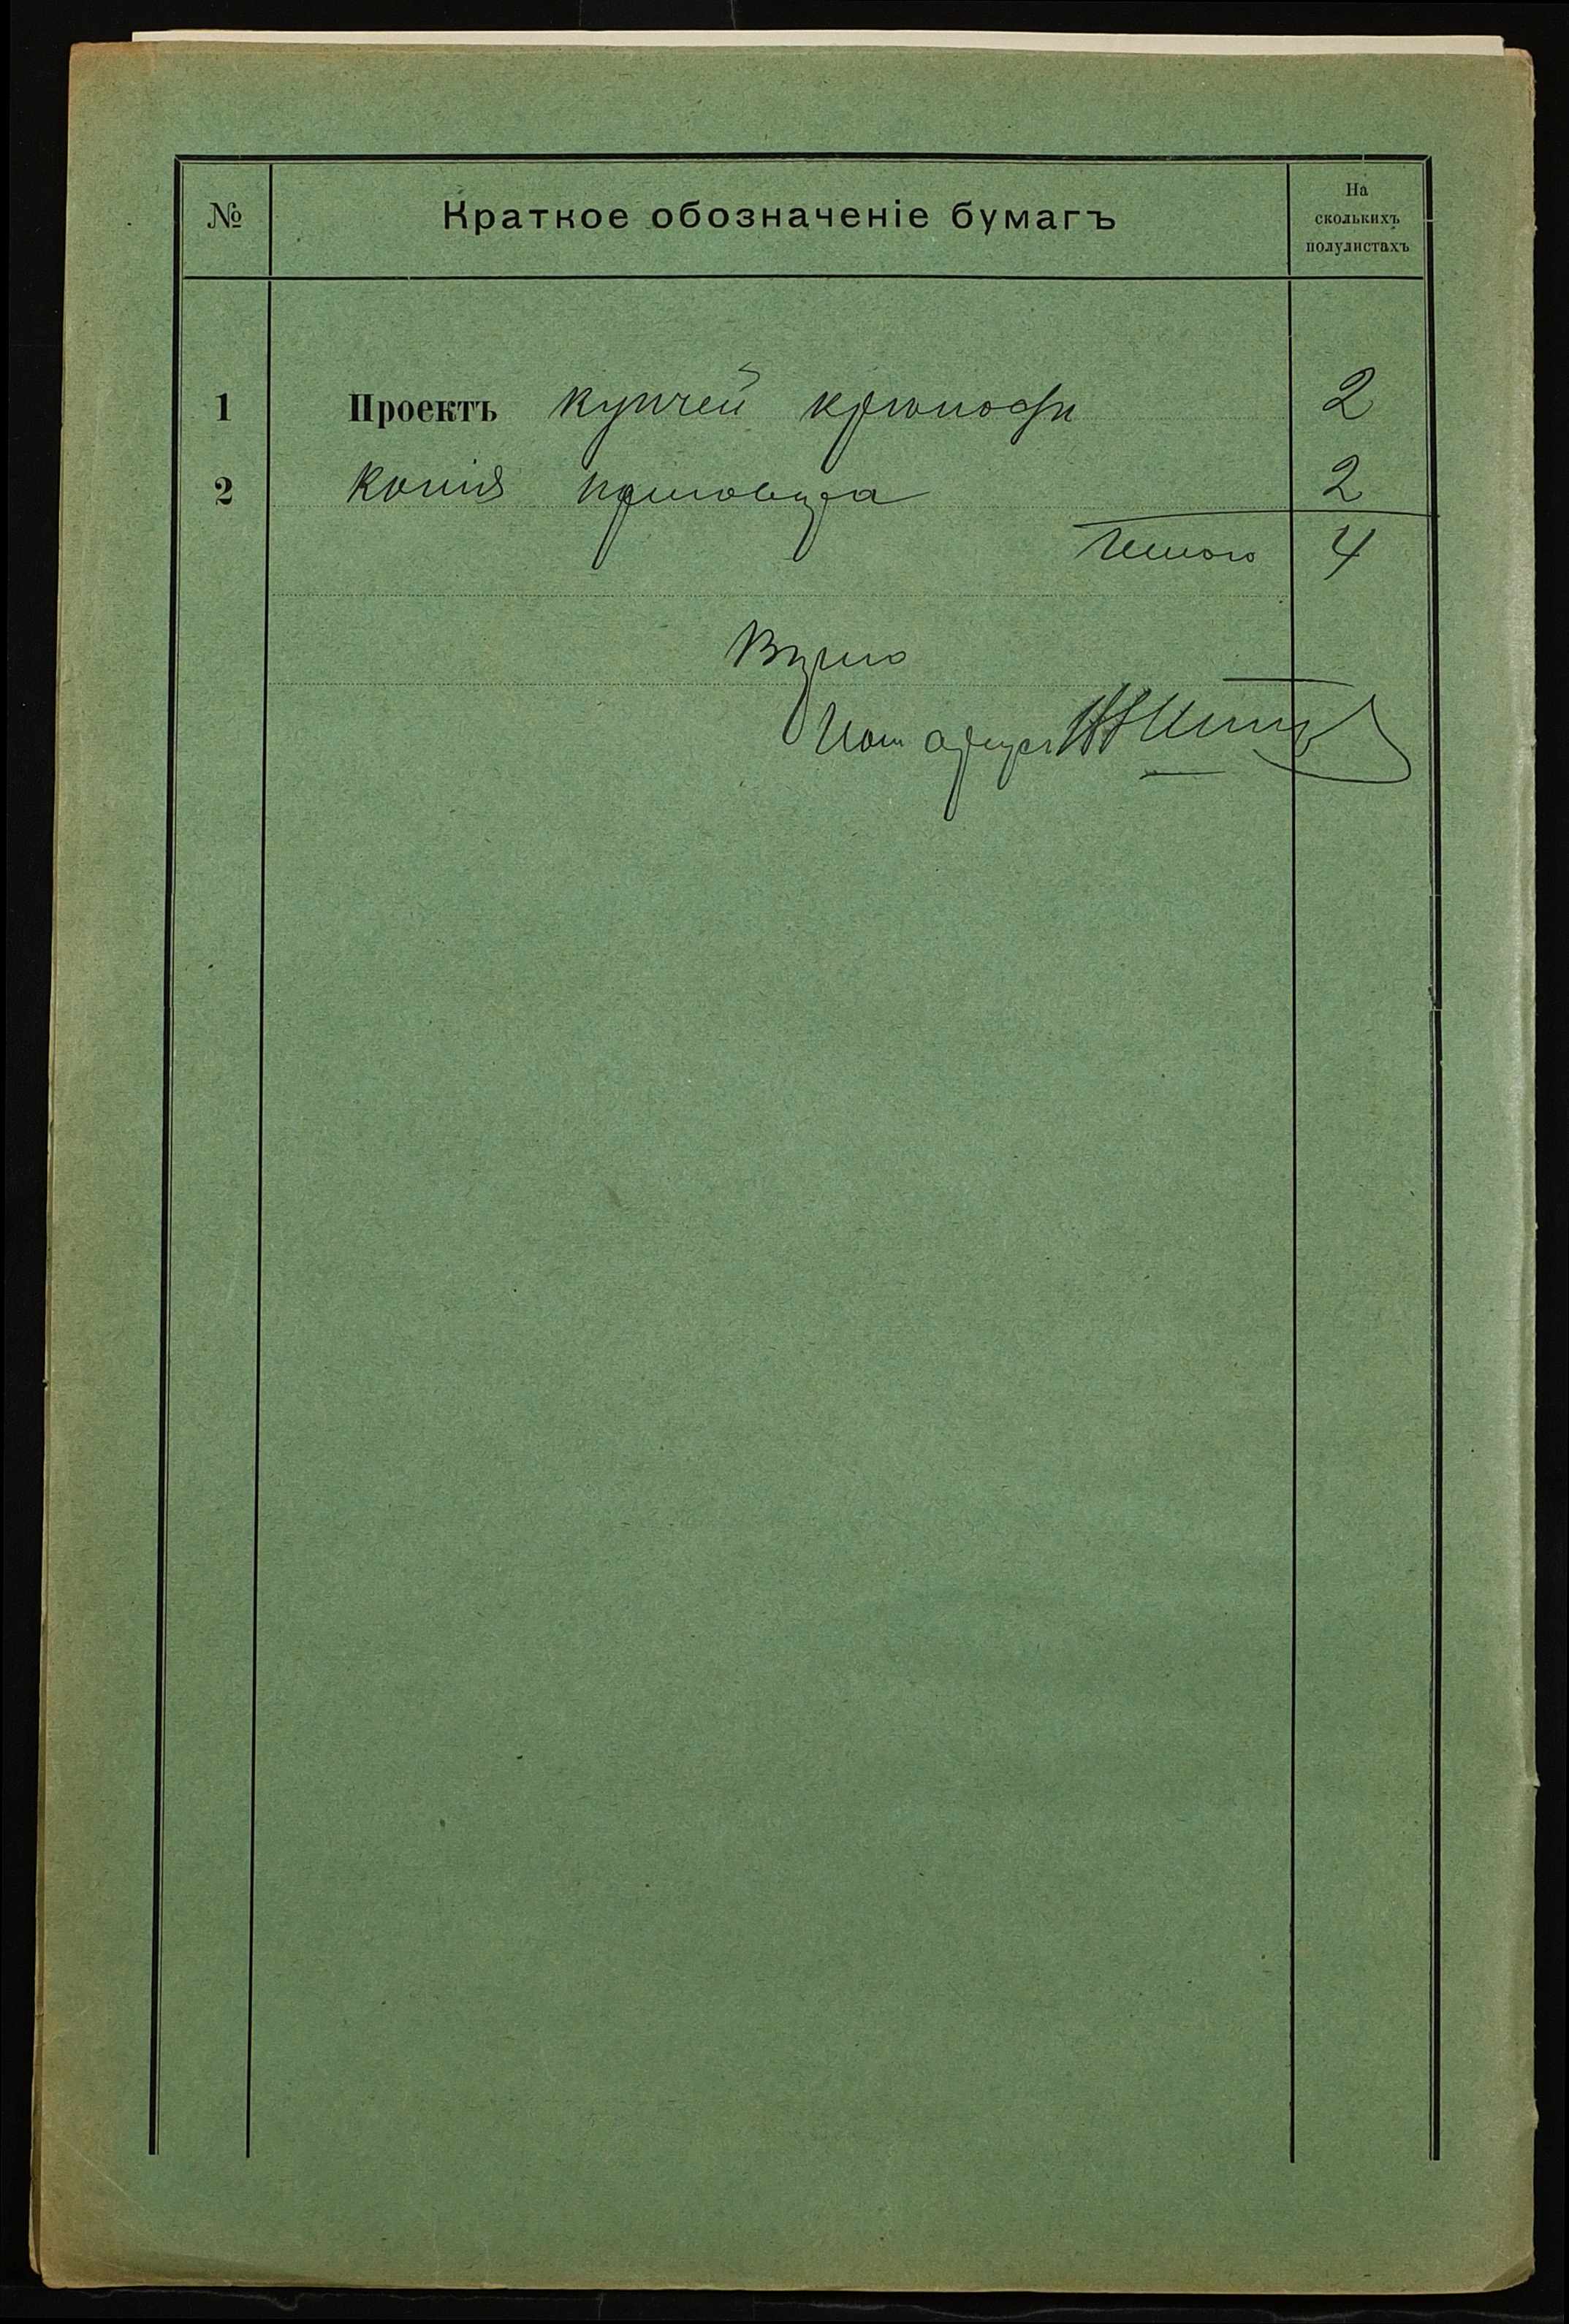 № Краткое обозначеніе бумагъ На
сколькихъ
полулистахъ
1 Проектъ купчей крѣпости 2
2 Копія приговора 2
Итого 4
Вѣрно
Нотаріусъ